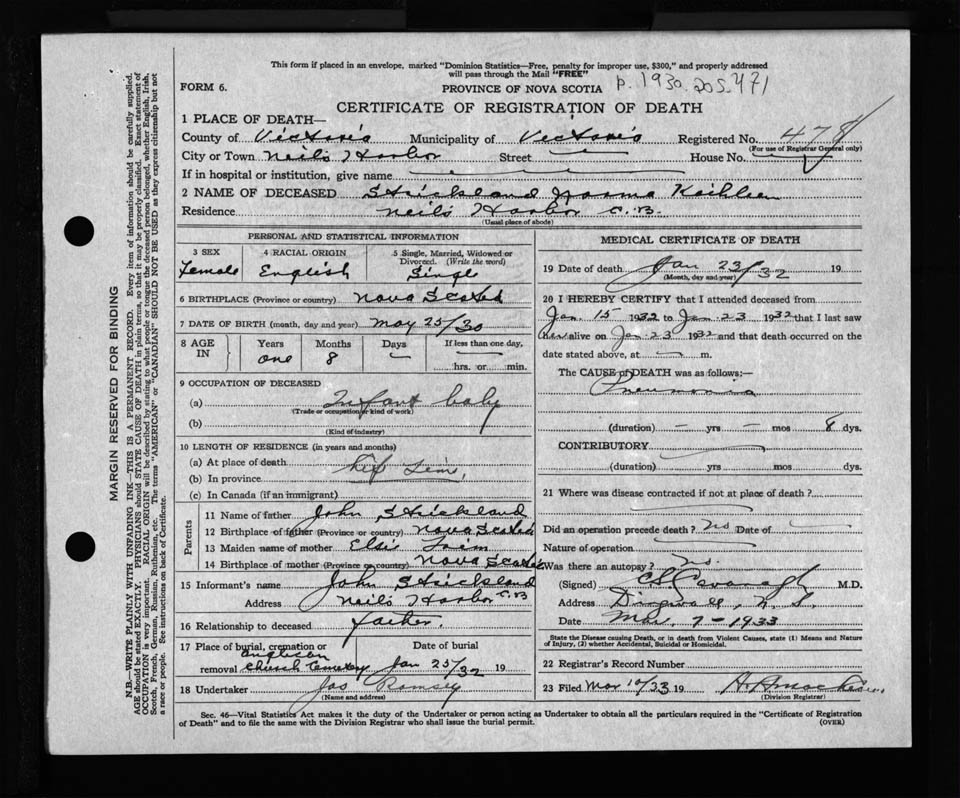 This form if placed in an envelope, marked "Dominion Statistics—Free, penalty for improper use, $300," and properly addressed
will pass through the Mail "FREE"
FORM 6.
PROVINCE OF NOVA SCOTIA
p. 1930. 205471
CERTIFICATE OF REGISTRATION OF DEATH
1 PLACE OF DEATH—
County of Victoria Municipality of Victoria Registered No. 478
(For use of Registrar General only)
City or Town Neil's Harbor Street — House No.
If in hospital or institution, give name
2 NAME OF DECEASED Strickland Norma Kathleen
Residence Neil's Harbor C.B.
(Usual place of abode)
PERSONAL AND STATISTICAL INFORMATION
3 SEX 4 RACIAL ORIGIN 5 Single, Married, Widowed or Divorced. (Write the word)
Female English Single
6 BIRTHPLACE (Province or country) Nova Scotia
7 DATE OF BIRTH (month, day and year) May 25/30
8 AGE IN Years Months Days If less than one day,
one 8 — hrs. or min.
9 OCCUPATION OF DECEASED
(a) Infant baby
(Trade or occupation or kind of work)
(b)
(Kind of industry)
10 LENGTH OF RESIDENCE (in years and months)
(a) At place of death
(b) In province Life Time
(c) In Canada (if an immigrant)
Parents
11 Name of father John Strickland
12 Birthplace of father (Province or country) Nova Scotia
13 Maiden name of mother Elsie
14 Birthplace of mother (Province or country) Nova Scotia
15 Informant's name John Strickland
Address Neil's Harbor C.B
16 Relationship to deceased Father
17 Place of burial, cremation or removal Anglican Church Cemetery Date of burial Jan 25/32 19
18 Undertaker Jas Romsey
(Name and address)
MEDICAL CERTIFICATE OF DEATH
19 Date of death Jan 23/32 19
(Month, day and year)
20 I HEREBY CERTIFY that I attended deceased from
Jan 15 1932 to Jan 23 1932 that I last saw
her alive on Jan 23 1932 and that death occurred on the
date stated above, at — m.
The CAUSE of DEATH was as follows:—
Pneumonia
(duration) — yrs — mos 8 dys.
CONTRIBUTORY
(duration) yrs mos dys.
21 Where was disease contracted if not at place of death?
Did an operation precede death? No Date of
Nature of operation
Was there an autopsy? No.
(Signed) M.D.
Address Dingwall, N.S.
Date Mar 7-1933
State the Disease causing Death, or in death from Violent Causes, state (1) Means and Nature
of Injury, (2) whether Accidental, Suicidal or Homicidal.
22 Registrar's Record Number
23 Filed Mar 10/33 19
(Division Registrar)
Sec. 46—Vital Statistics Act makes it the duty of the Undertaker or person acting as Undertaker to obtain all the particulars required in the "Certificate of Registration
of Death" and to file the same with the Division Registrar who shall issue the burial permit. (OVER)
MARGIN RESERVED FOR BINDING
N.B.—WRITE PLAINLY WITH UNFADING INK—THIS IS A PERMANENT RECORD. Every item of information should be carefully supplied.
AGE should be stated EXACTLY. PHYSICIANS should STATE CAUSE OF DEATH in plain terms, so that it may be properly classified. Exact statement of
OCCUPATION is very important. RACIAL ORIGIN will be described by stating to what people or tongue the deceased person belonged, whether English, Irish,
Scotch, French, German, Russian, Ruthenian, etc. The terms "AMERICAN" or "CANADIAN" SHOULD NOT BE USED as they express citizenship but not
a race or people. See instructions on back of Certificate.